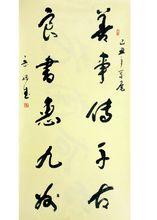 善事傳千古
良書惠九州